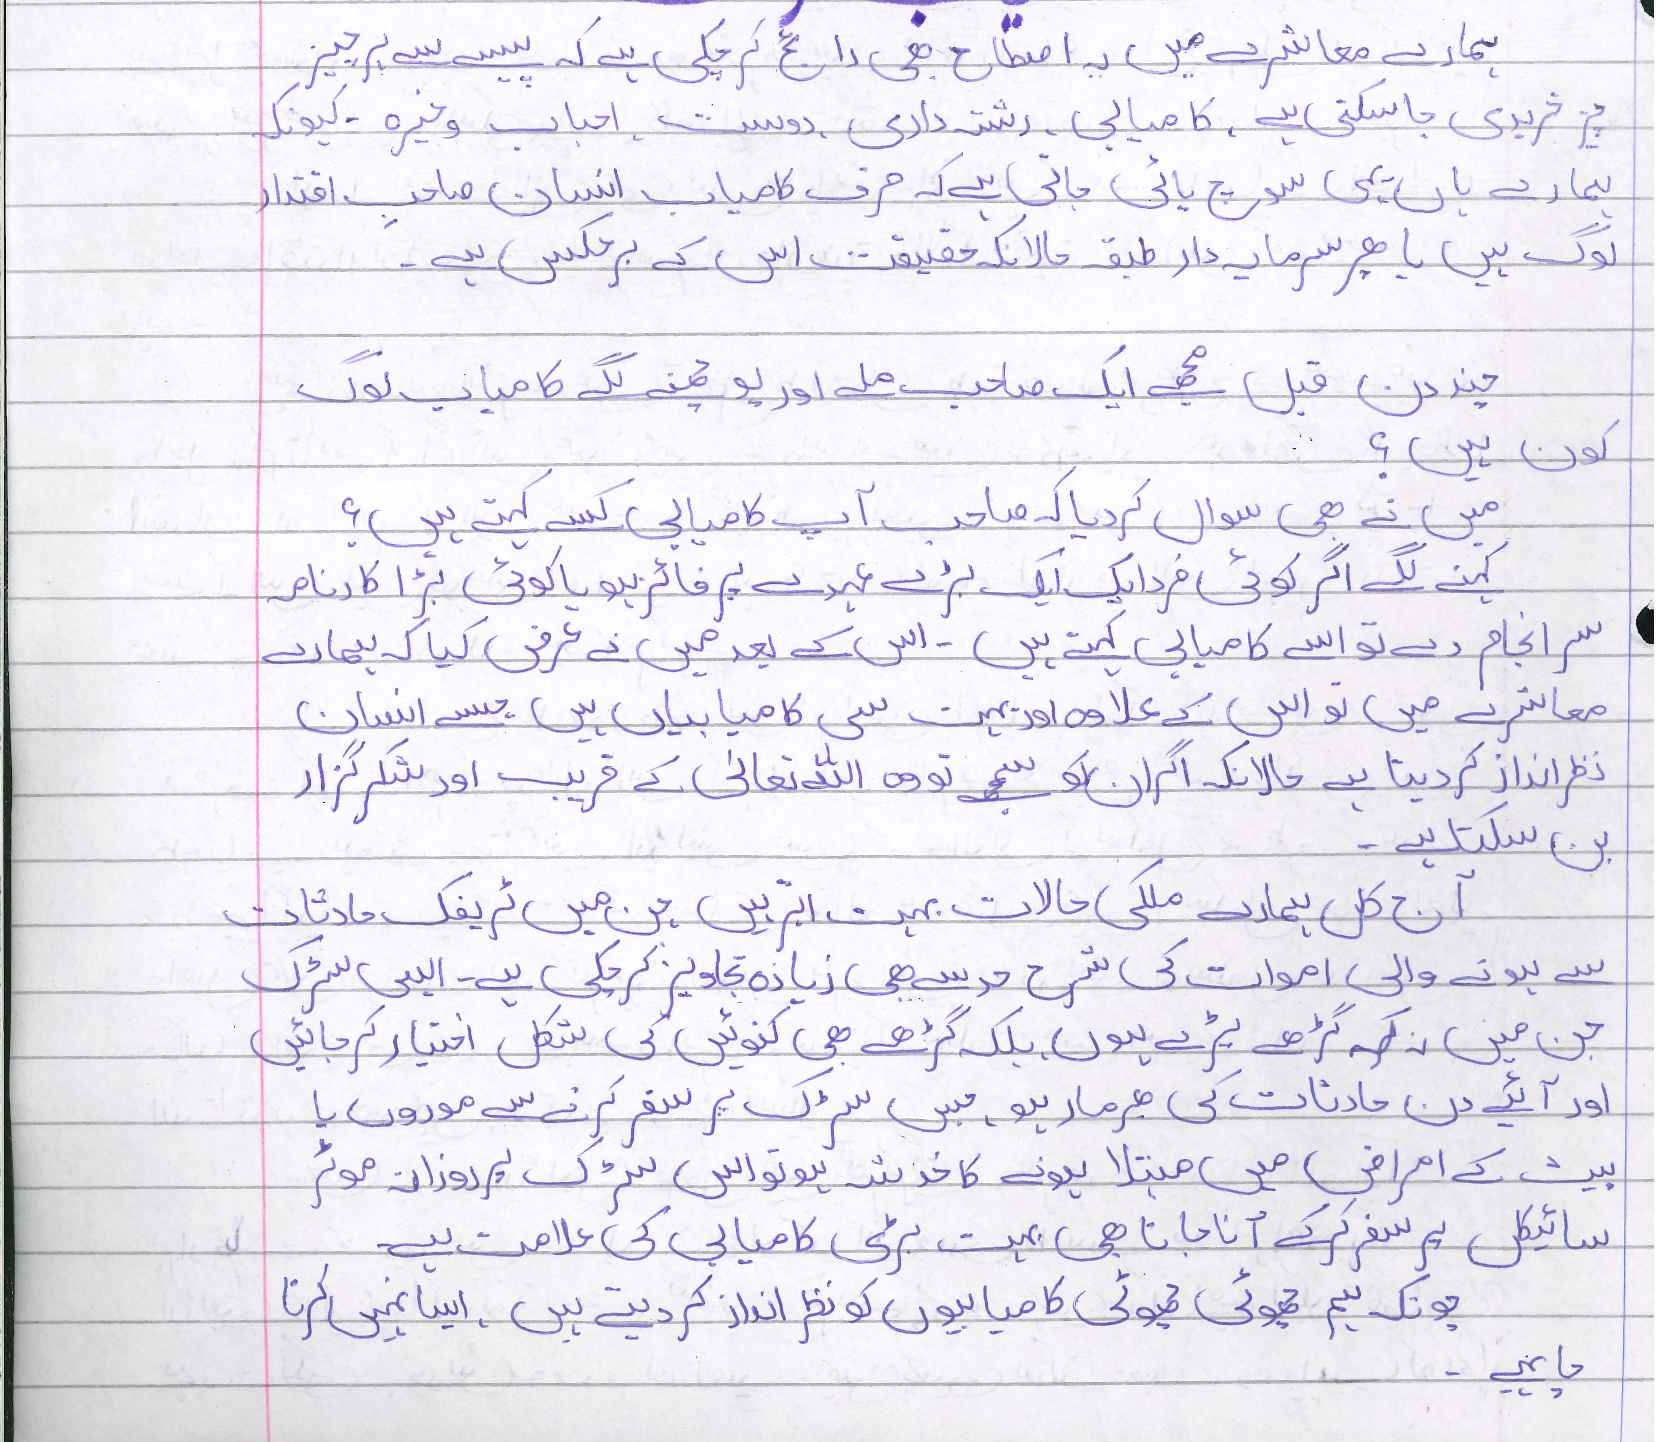 ہمارے معاشرے میں یہ اصطلاح بھی رائج کر چکی ہے کہ پیسے سے ہر چیز
چیز خریدی جا سکتی ہے، کامیابی، رشتہ داری، دوست، احباب وغیرہ - کیونکہ
ہمارے ہاں یہی سوچ پائی جاتی ہے کہ صرف کامیاب انسان صاحبِ اقتدار
لوگ ہیں یا پھر سرمایہ دار طبقہ حالانکہ حقیقت اس کے برعکس ہے -
چند دن قبل مجھے ایک صاحب ملے اور پوچھنے لگے کامیاب لوگ
کون ہیں؟
میں نے بھی سوال کر دیا کہ صاحب آپ کامیابی کسے کہتے ہیں؟
کہنے لگے اگر کوئی فرد ایک ایک بڑے عہدے پر فائز ہو یا کوئی بڑا کارنامہ
سر انجام دے تو اسے کامیابی کہتے ہیں - اس کے بعد میں نے عرض کیا کہ ہمارے
معاشرے میں تو اس کے علاوہ اور بہت سی کامیابیاں ہیں جسے انسان
نظر انداز کر دیتا ہے حالانکہ اگر ان کو سمجھے تو وہ اللہ تعالیٰ کے قریب اور شکر گزار
بن سکتا ہے -
آج کل ہمارے ملکی حالات بہت ابتر ہیں جن میں ٹریفک حادثات
سے ہونے والی اموات کی شرح حد سے بھی زیادہ تجاویز کر چکی ہے - ایسی سڑک
جن میں نہ گڑھے پڑے ہوں بلکہ گڑھے بھی کنوئیں کی شکل اختیار کر جائیں
اور آئے دن حادثات کی بھرمار ہو، جس سڑک پر سفر کرنے سے موروں یا
پیٹ کے امراض میں مبتلا ہونے کا خدشہ ہو تو اس سڑک پر روزانہ موٹر
سائیکل پر سفر کر کے آنا جانا بھی بہت بڑی کامیابی کی علامت ہے
چونکہ ہم چھوٹی چھوٹی کامیابیوں کو نظر انداز کر دیتے ہیں، ایسا نہیں کرنا
چاہیے -